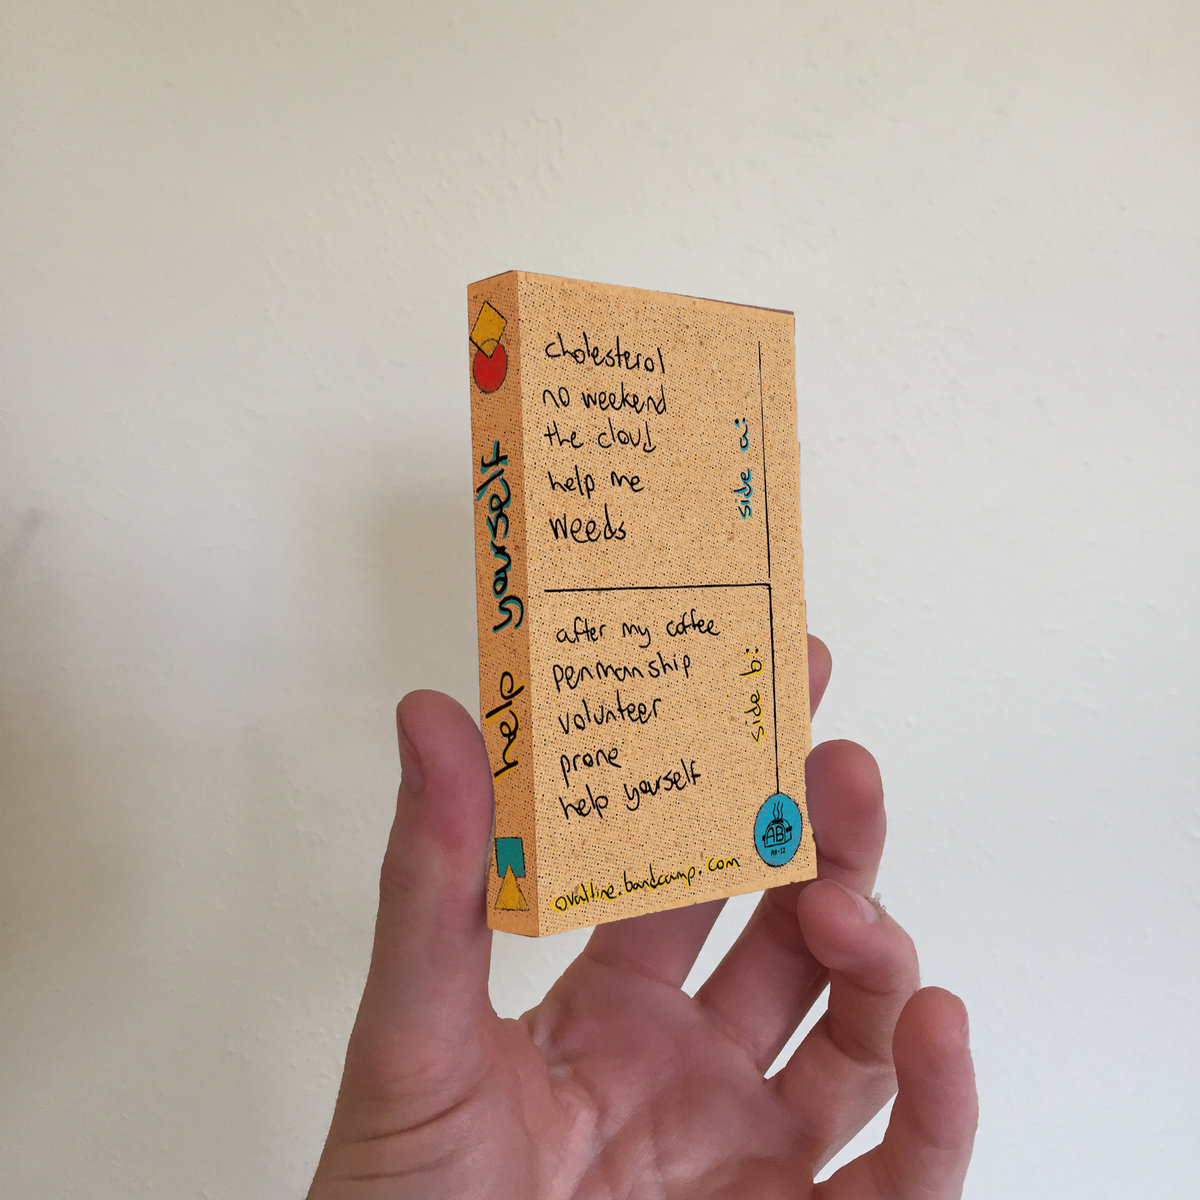 help yourself
cholesterol
no weekend
the cloud
help me
weeds
side a:
after my coffee
penmanship
volunteer
prone
help yourself
side b:
AB
ovaltine.bandcamp.com